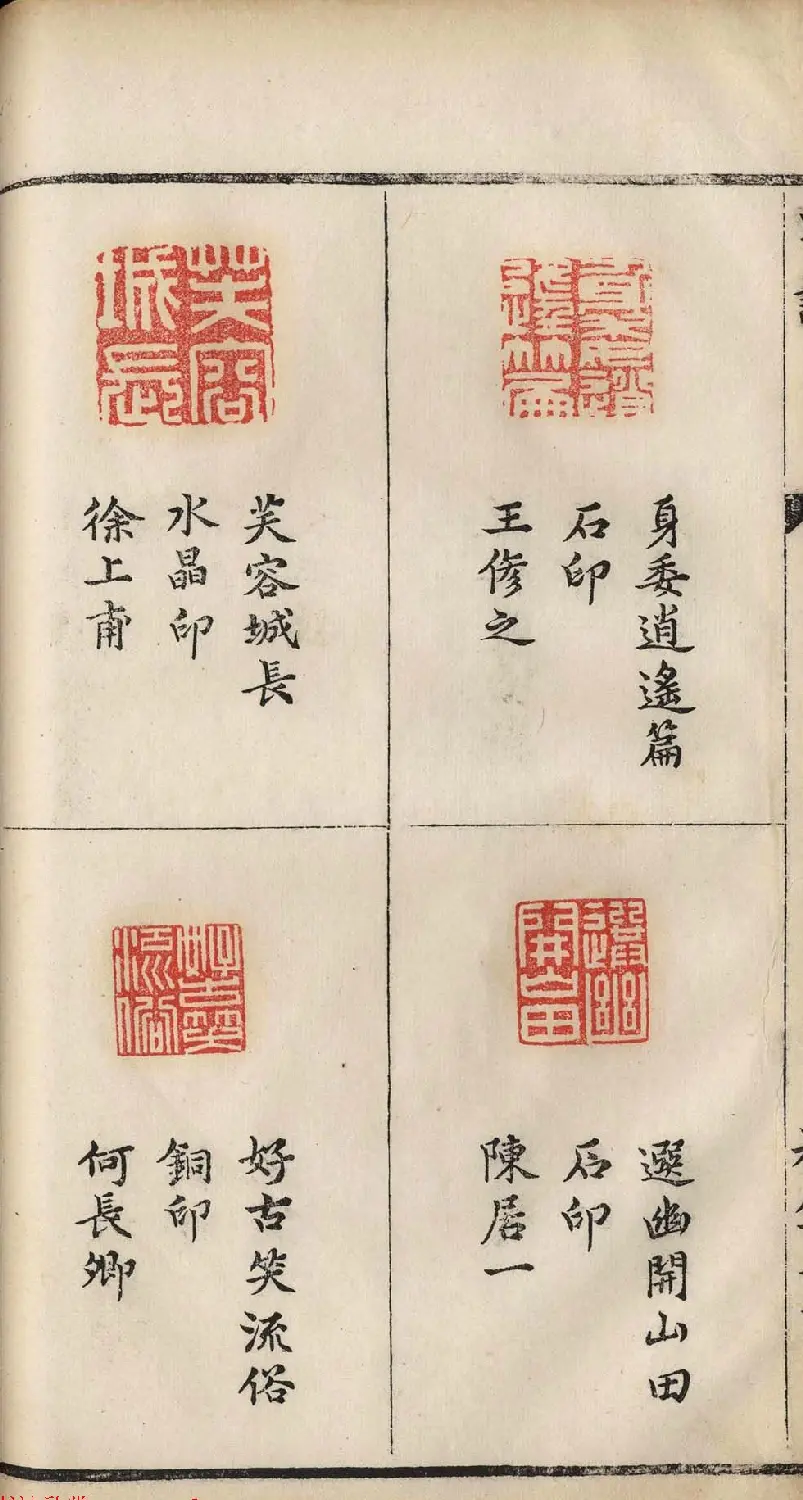 身委逍遙篇
石印
王修之
芙容城長
水晶印
徐上甫
選幽開山田
石印
陳居一
好古笑流俗
銅印
何長卿